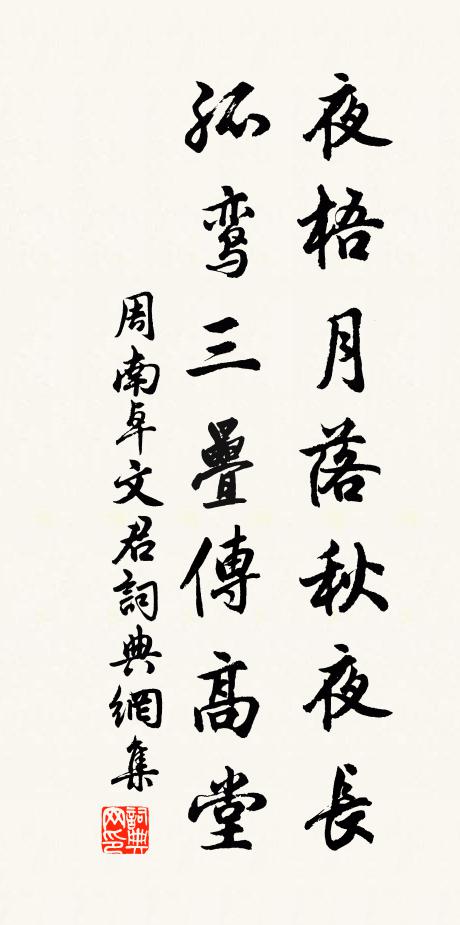 夜梧月落秋夜長
孤鸾三疊傳高堂
周南卓文君詞典網集
詞典网印